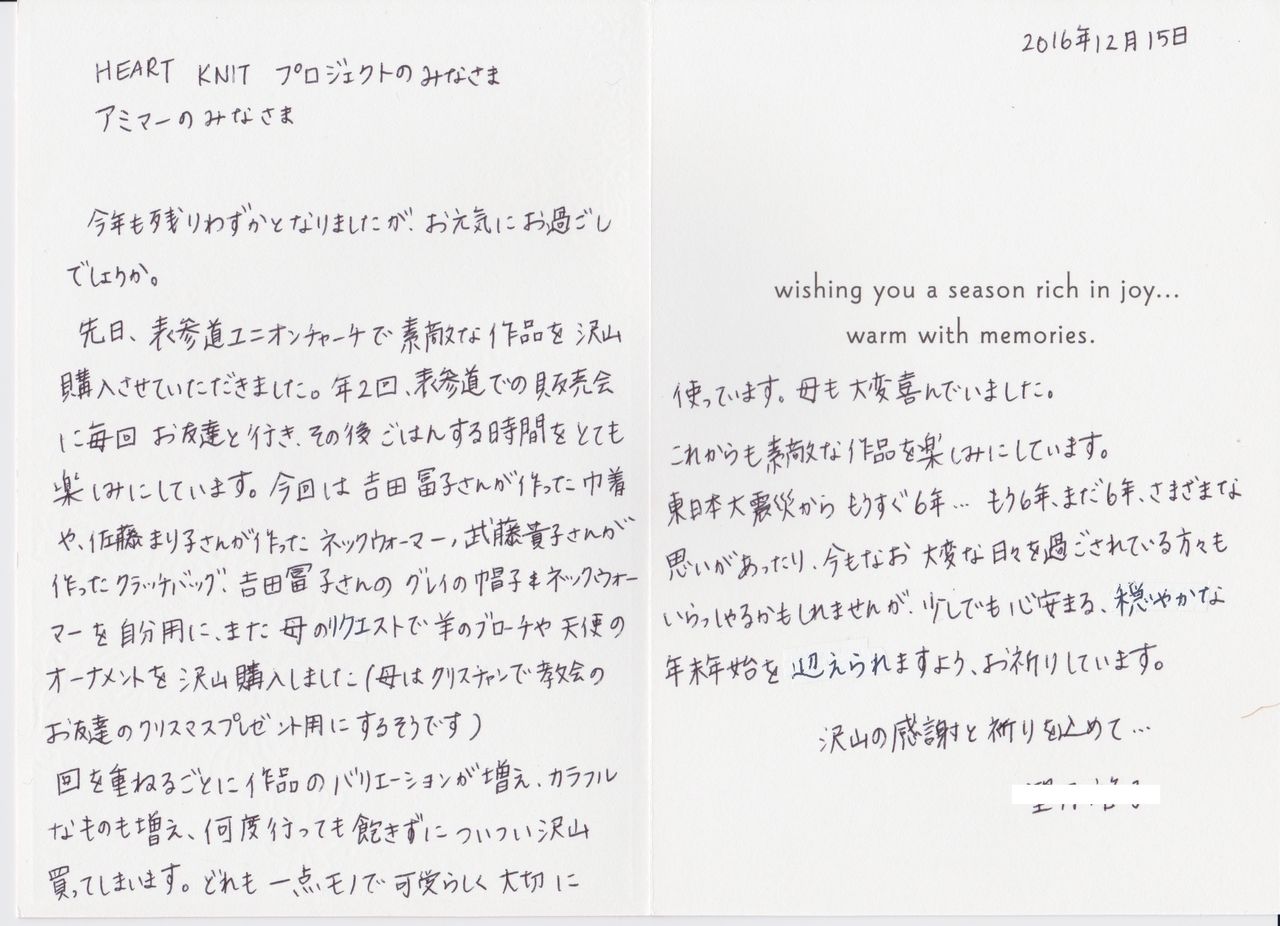 HEART KNIT プロジェクトのみなさま
アミマーのみなさま
今年も残りわずかとなりましたが、お元気にお過ごし
でしょうか。
先日、表参道ユニオンチャーチで素敵な作品を沢山
購入させていただきました。年2回、表参道での販売会
に毎回お友達と行き、その後ごはんする時間をとても
楽しみにしています。今回は吉田冨子さんが作った巾着
や、佐藤まり子さんが作ったネックウォーマー、武藤貴子さんが
作ったクラッチバッグ、吉田冨子さんのグレイの帽子&ネックウォー
マーを自分用に、また母のリクエストで羊のブローチや天使の
オーナメントを沢山購入しました(母はクリスチャンで教会の
お友達のクリスマスプレゼント用にするそうです)
回を重ねるごとに作品のバリエーションが増え、カラフル
なものも増え、何度行っても飽きずについつい沢山
買ってしまいます。どれも一点モノで可愛らしく大切に
2016年12月15日
wishing you a season rich in joy...
warm with memories.
使っています。母も大変喜んでいました。
これからも素敵な作品を楽しみにしています。
東日本大震災からもうすぐ6年… もう6年、まだ6年、さまざまな
思いがあったり、今もなお大変な日々を過ごされている方々も
いらっしゃるかもしれませんが、少しでも心安まる、穏やかな
年末年始を迎えられますよう、お祈りしています。
沢山の感謝と祈りを込めて…